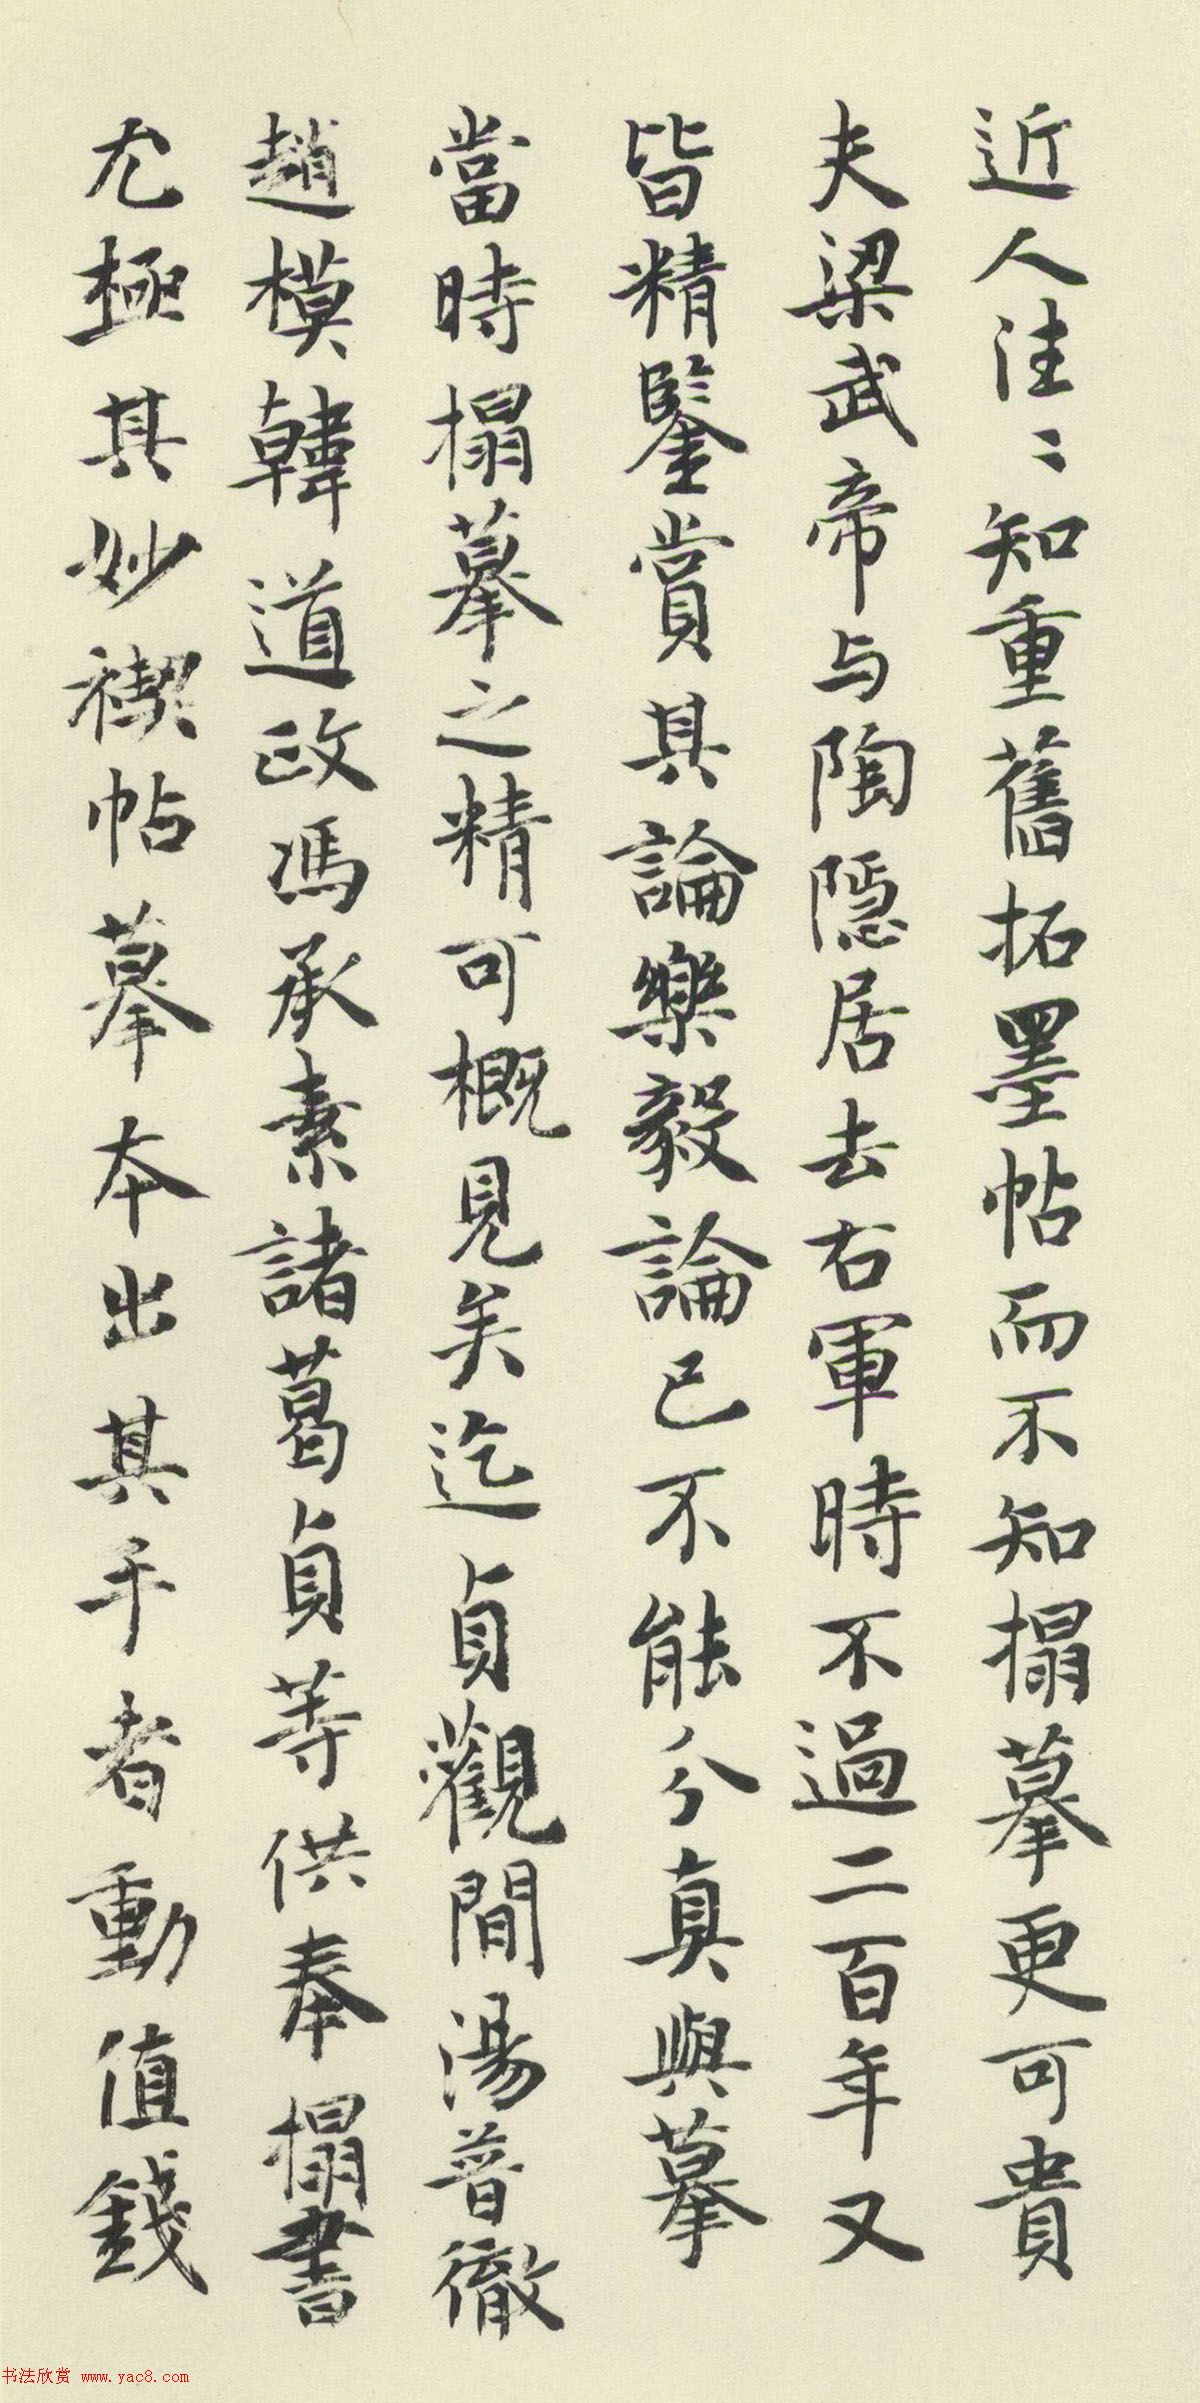 近人往〻知重舊拓墨帖而不知搨摹更可貴
夫梁武帝与陶隱居去右軍時不過二百年又
皆精鑒賞其論樂毅論已不能分真與摹
當時搨摹之精可概見矣迄貞觀間湯普徹
趙模韓道政馮承素諸葛貞等供奉搨書
尤極其妙禊帖摹本出其手者動值錢
书法欣赏 www.yac8.com